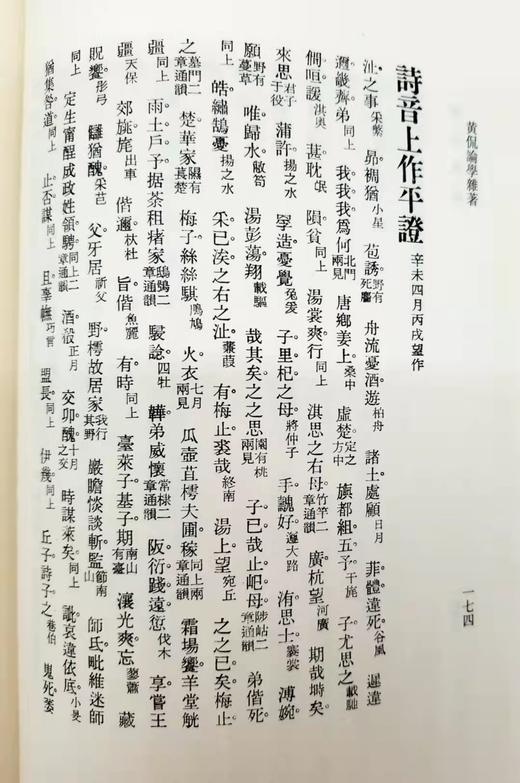 黃侃論學雜著
一七四
詩音上作平證 辛未四月丙戌望作
沚之事采蘩 昴裯猶小星 苞誘野有死麕 舟流憂酒遊柏舟 諸土處顧日月 菲體違死谷風 遲違
邇畿薺弟同上 我我我為何北門兩見 唐鄉姜上桑中 虛楚定之方中 旟都組五予干旄 子尤思之載馳
僩咺諼淇奧 葚耽氓 隕貧同上 湯裳爽行同上 淇思之右母竹竿二章通韻 廣杭望河廣 期哉塒矣
來思君子于役 蒲許揚之水 罦造憂覺兔爰 子里杞之母將仲子 手魗好遵大路 洧思士褰裳 溥婉
願野有蔓草 唯歸水敝笱 湯彭蕩翔載驅 哉其矣之之思園有桃兩見 子已哉止屺母陟岵二章通韻 弟偕死
同上 皓繡鵠憂揚之水 采已涘之右之沚蒹葭 有梅止裘哉終南 湯上望宛丘 之之已矣梅止
之墓門二章通韻 楚華家隰有萇楚 梅子絲絲騏鳲鳩 火衣七月兩見 瓜壺苴樗夫圃稼同上兩章通韻 霜場饗羊堂觥
疆同上 雨土戶予据荼租瘏家鴟鴞二章通韻 駸諗四牡 韡弟威懷常棣二章通韻 阪衍踐遠愆伐木 享嘗王
疆天保 郊旐旄出車 偕邇杕杜 旨偕魚麗 有時同上 臺萊子基子期南山有臺 瀼光爽忘蓼蕭 藏
貺饗彤弓 讎猶醜采芑 父牙居祈父 野樗故居家我行其野 巖瞻惔談斬監節南山 師氐毗維迷師
同上 定生甯醒成政姓領騁同上二章通韻 酒殽正月 交卯醜十月之交 時謀萊矣同上 訿哀違依底小旻
猶集咎道同上 止否謀同上 且辜幠巧言 盟長同上 伊幾同上 丘子詩子之巷伯 嵬死萎